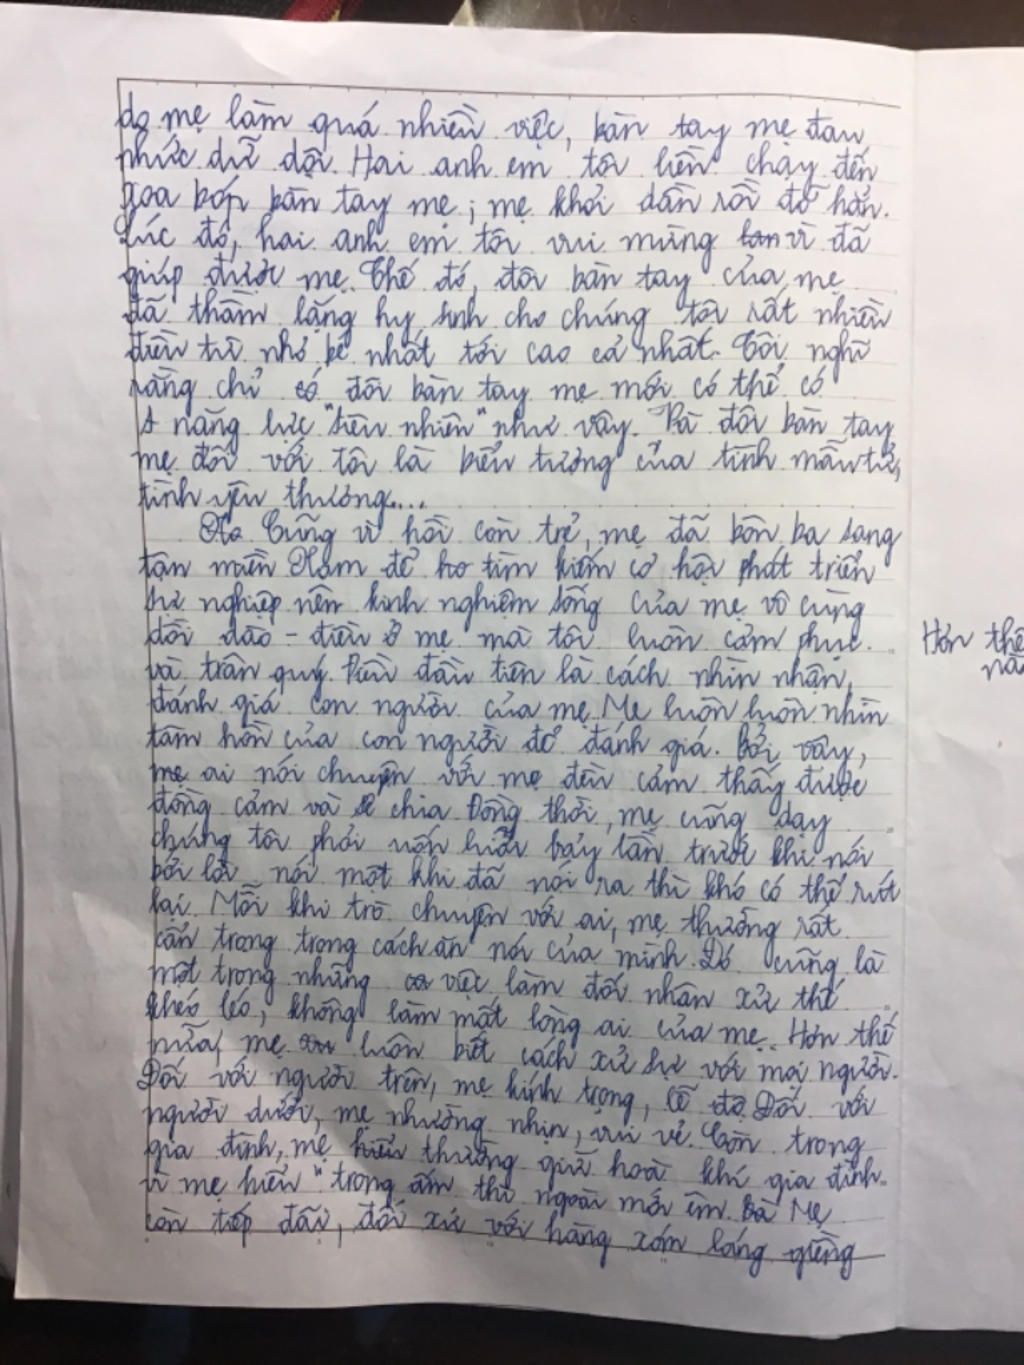 do mẹ làm quá nhiều việc, bàn tay mẹ đau
nhức dữ dội. Hai anh em tôi liền chạy đến
xoa bóp bàn tay mẹ; mẹ khỏi dần rồi đỡ hẳn.
Lúc đó, hai anh em tôi vui mừng vì đã
giúp được mẹ. Thế đó, đôi bàn tay của mẹ
đã thầm lặng hy sinh cho chúng tôi rất nhiều
điều từ nhỏ bé nhất tới cao cả nhất. Tôi nghĩ
rằng chỉ có đôi bàn tay mẹ mới có thể có
năng lực "siêu nhiên" như vậy. Và đôi bàn tay
mẹ đối với tôi là biểu tượng của tình mẫu tử,
tình yêu thương...
Cũng vì hồi còn trẻ, mẹ đã bôn ba sang
tận miền Nam để tìm kiếm cơ hội phát triển
sự nghiệp nên kinh nghiệm sống của mẹ vô cùng
dồi dào - điều ở mẹ mà tôi luôn cảm phục
và trân quý. Điều đầu tiên là cách nhìn nhận,
đánh giá con người của mẹ. Mẹ luôn luôn nhìn
tâm hồn của con người để đánh giá. Bởi vậy,
mẹ ai nói chuyện với mẹ đều cảm thấy được
đồng cảm và sẻ chia. Đồng thời, mẹ cũng dạy
chúng tôi phải uốn lưỡi bảy lần trước khi nói
bởi lời nói một khi đã nói ra thì khó có thể rút
lại. Mỗi khi trò chuyện với ai, mẹ thường rất
cẩn trọng trong cách ăn nói của mình. Đó cũng là
một trong những việc làm đối nhân xử thế
khéo léo, không làm mất lòng ai của mẹ. Hơn thế
nữa, mẹ luôn biết cách xử sự với mọi người.
Đối với người trên, mẹ kính trọng, Đối với
người dưới, mẹ nhường nhịn, vui vẻ. Còn trong
gia đình, mẹ thường giữ hoà khí gia đình
vì mẹ hiểu "trong ấm thì ngoài mới êm. Mẹ
còn tiếp đãi, đối xử với hàng xóm láng giềng
Hơn thế